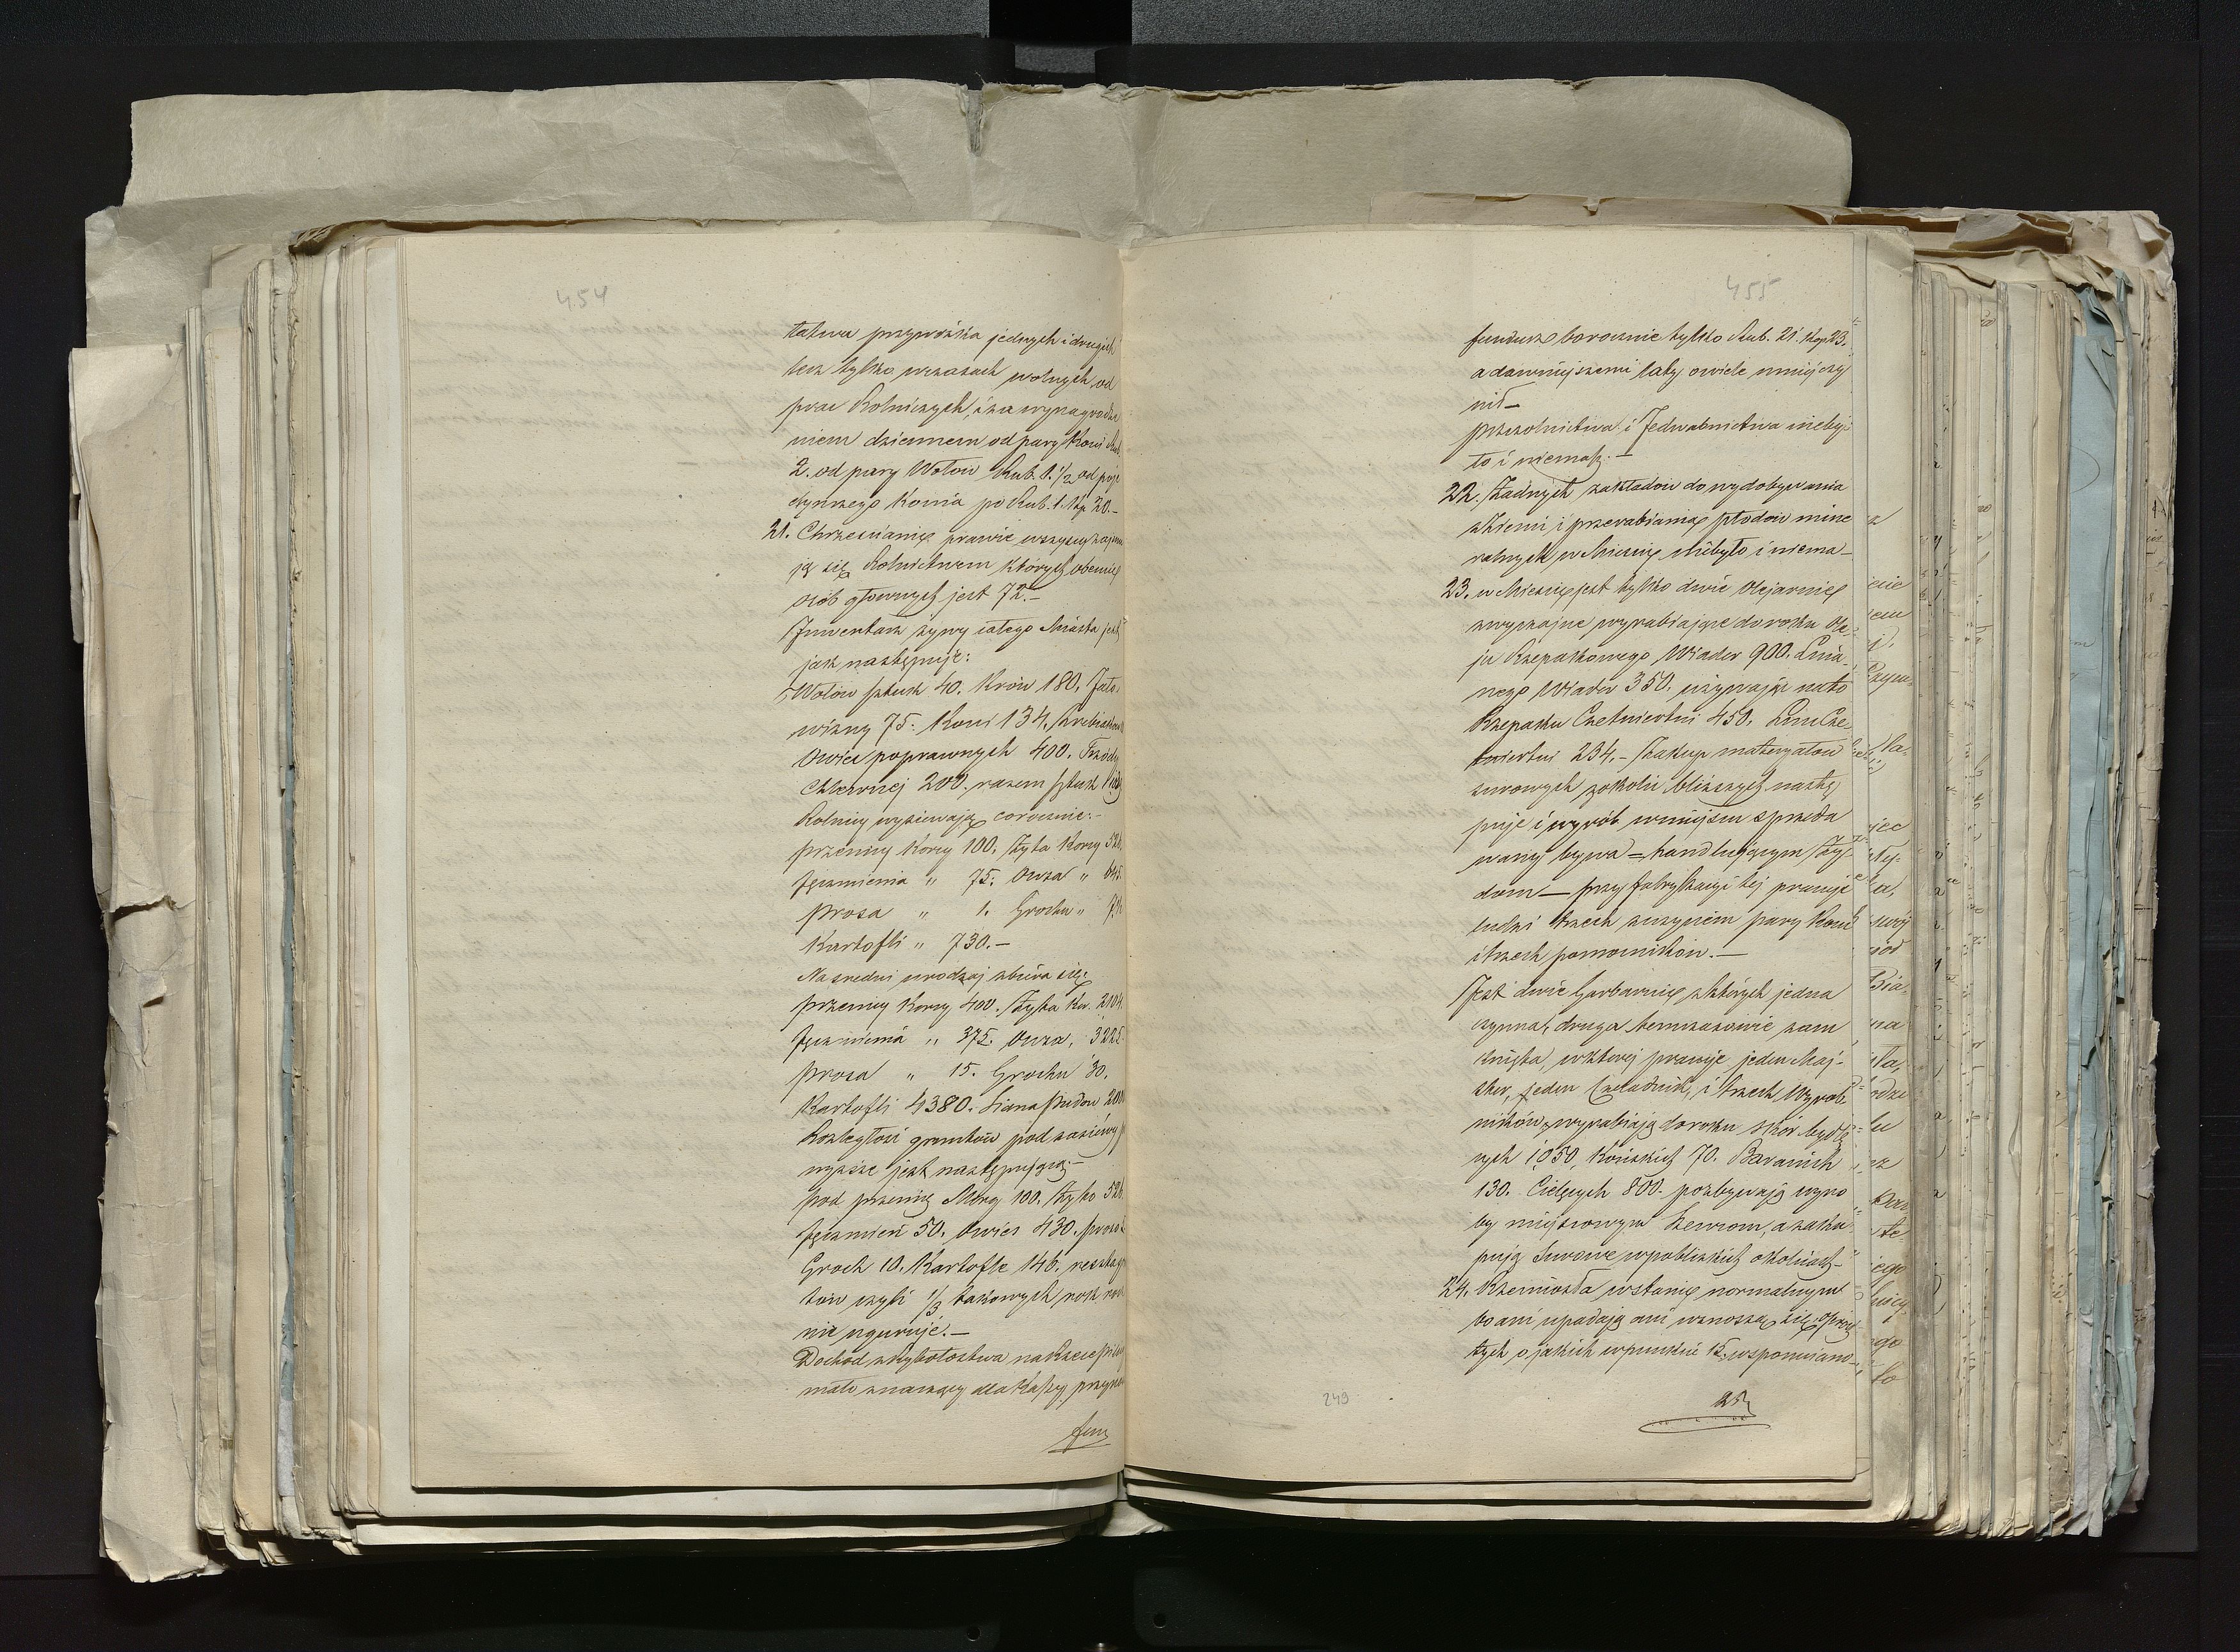 454
łatwa przywózka jednych i drugich
lecz tylko w czasach wolnych od
prac Rolniczych, i za wynagrodze
niem dziennem od pary Koni Rub
2. od pary Wołów Rub. 1. 1/2 od poje
dynczego Konia po Rub. 1. kop. 20.—
21. Chrześcianie prawie wszyscy zajmu
ją się Rolnictwem których obecnie
osób głównych jest 72.—
Inwentarz żywy całego Miasta jest
jak następuje:
Wołów sztuk 40. Krów 180. Jało
wizny 75. Koni 134. Źrebiąt
Owiec poprawnych 400. Trzody
Chlewnej 200. razem sztuk
Rolnicy wysiewają corocznie:—
pszenicy Korcy 100. Żyta Korcy 526.
Jęczmienia " 75. Owsa " 645.
prosa " 1. Grochu "
Kartofli " 730.—
Na średni urodzaj zbiera się:
pszenicy Korcy 400. Żyta Kor. 2104.
Jęczmienia " 375. Owsa, 3225.
prosa " 15. Grochu 30.
Kartofli 4380. Siana pudów
Rozległość gruntów pod zasiewy p
wyższe jest następującą:—
pod pszenicę Morg 100. Żyto 526.
Jęczmień 50. Owies 430. proso
Groch 10. Kartofle 146. reszta gr
tów czyli 1/3 takowych rok rocz
nie ugoruje.—
Dochód z rybołostwa na Rzece
mało znaczący dla Kassy przyno
fun
455
fundusz corocznie tylko Rub. 21. kop 23.
a dawniejszemi laty o wiele mniejszy
nił—
pszczolnictwa i Jedwabnictwa nieby
ło i niemasz.—
22. Żadnych zakładów do wydobywania
z Ziemi i przerabiania płodów mine
ralnych w Mieście niebyło i niema—
23. w Mieście jest tylko dwie Olejarnie
zwyczajne wyrabiające do roku Ole-
ju Rzepakowego Wiader 900. Lnia-
nego Wiader 350. używając na to
Rzepaku Czetwierti 450. Lnu Cze
twierti 234.— Zakup materyałów
surowych z okolic bliższych nastę
puje i wyrób w miejscu sprzeda
wany bywa — handlującym Ży-
dom — przy fabrykacyi tej pracuje
ludzi trzech z użyciem pary Koni
i trzech pomocników.—
Jest dwie Garbarnie z których jedna
czynna, druga temczasowie zam
knięta, w której pracuje jeden Maj-
ster, jeden Czeladnik, i trzech Wyrob-
ników, wyrabiają do roku skór bydlę
cych 1050, Końskich 70. Baranich
130. Cielęcych 800. pozbywają wyro
by miejscowym Szewcom, a zaku
pują Surowe w pobliskich okolicach—
24. Rzemiosła w stanie normalnym
bo ani upadają ani wznoszą się, oprócz
tych o jakich w punkcie 15 wspomniano—
25.
249